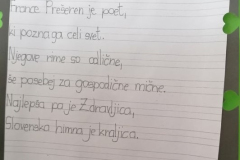 France Prešeren je poet,
ki pozna ga celi svet.
Njegove rime so odlične,
še posebej za gospodične mične.
Najlepša pa je Zdravljica,
Slovenska himna je kraljica.